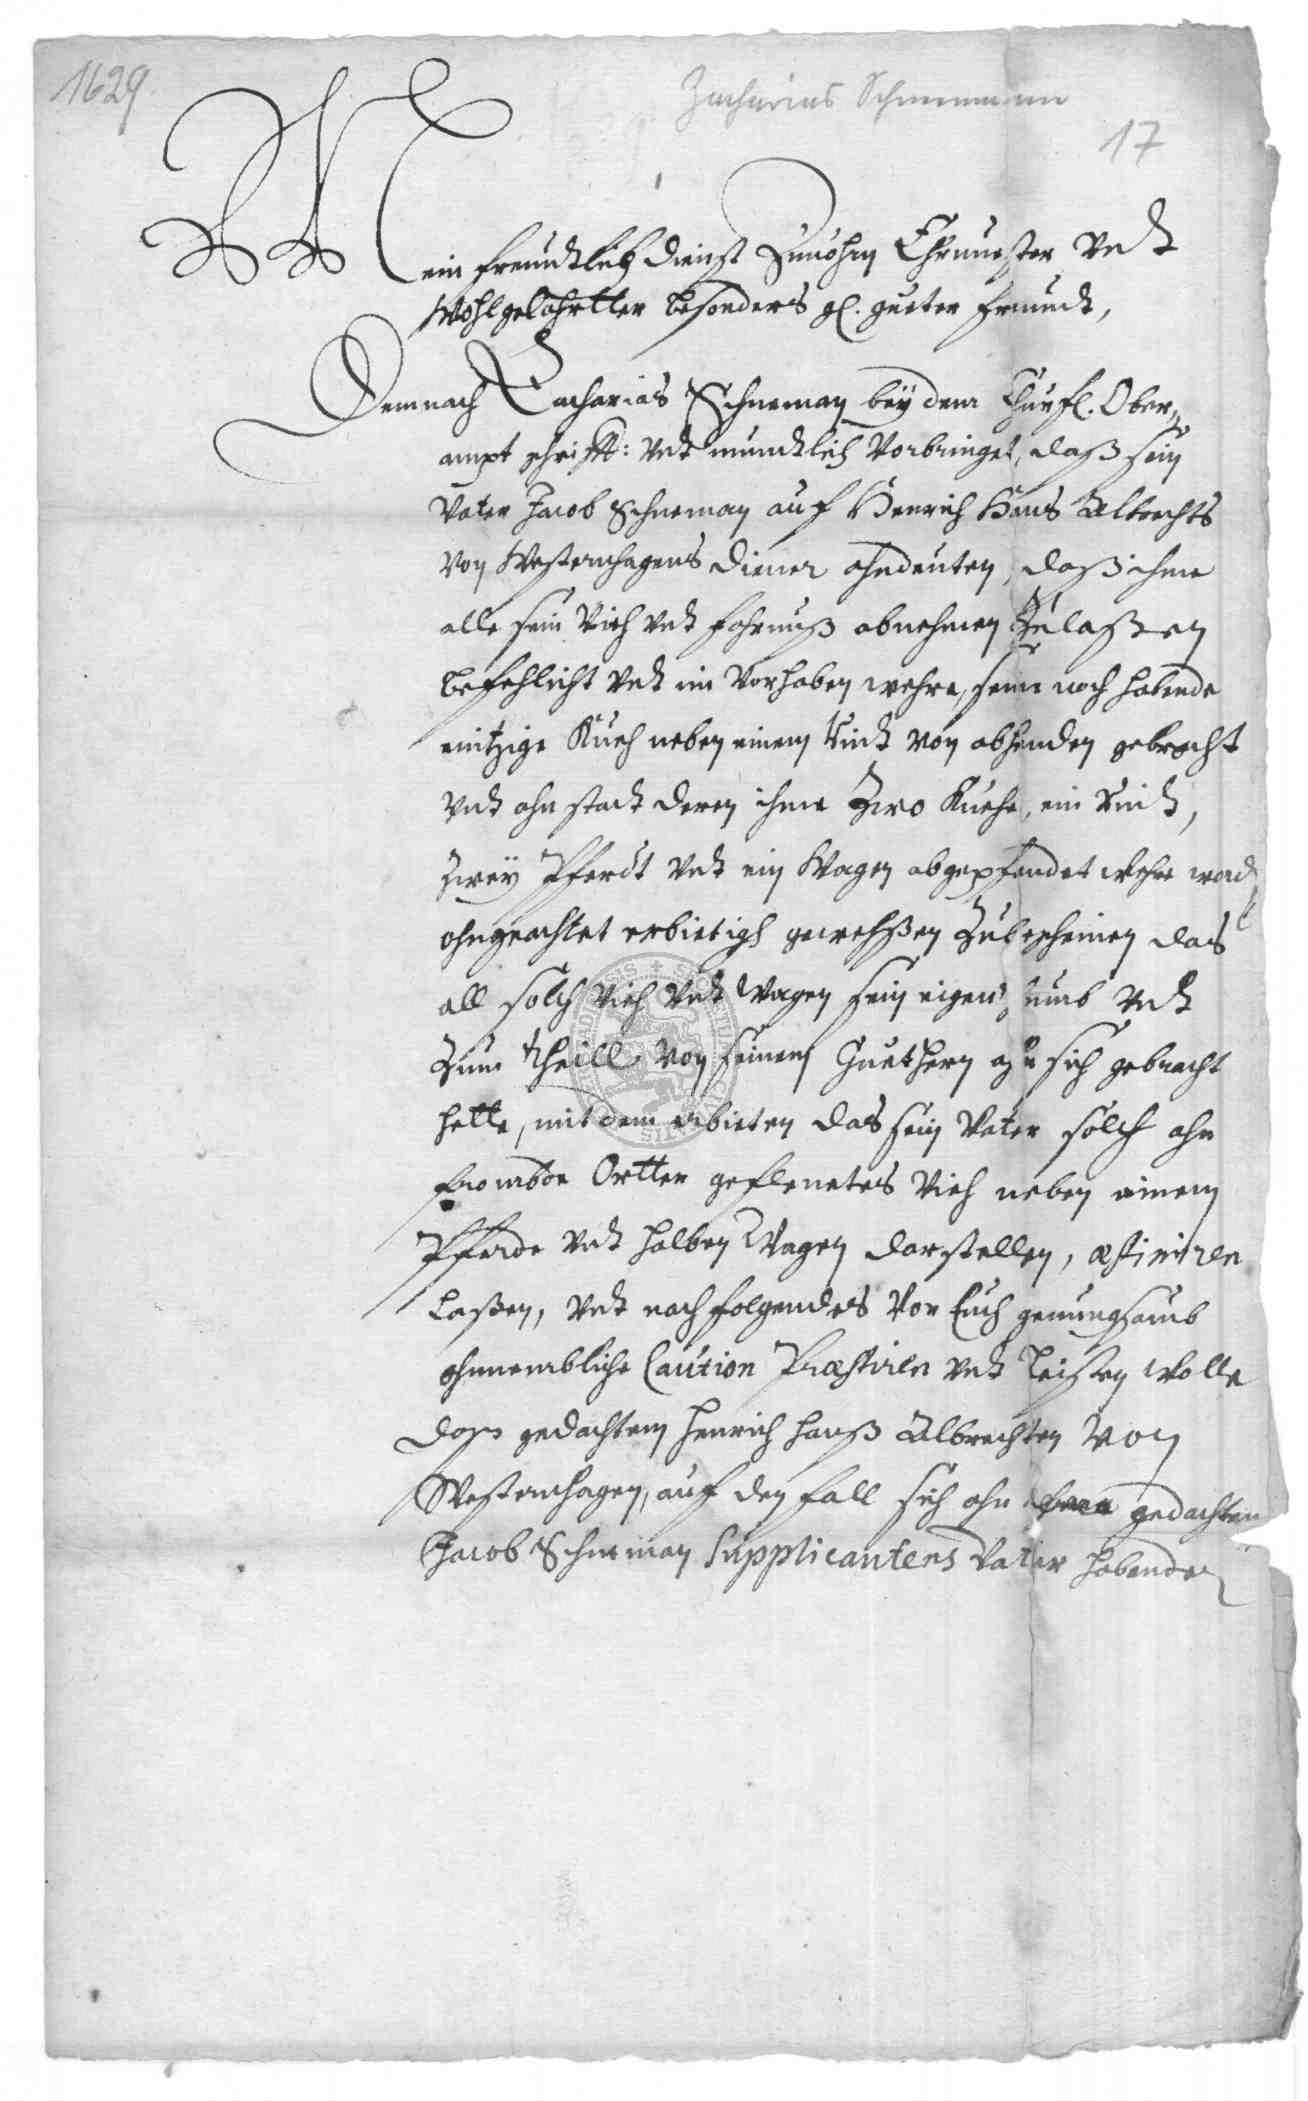 1629
Zacharias Schnemann
17
Mein freundtlich dienst zuuohrn Ehrnuester vndt
Wohlgelahrtter besonders gl. gueter freundt,
Demnach Zacharias Schneman beÿ dem Churfl. Ober,
ampt schrifft: vndt mundtlich vorbringet, daß sein
Vater Jacob Schneman auf Henrich Hans Albrechts
von Westernhagens diener ahndeuten, daß ihme
alle sein Vieh vndt fahrnuß abnehmen zulaßen
befehlicht vndt im vorhaben wehre, seine noch habende
eintzige Kueh neben einem Rindt von abhenden gebracht
vndt ahn stadt deren ihme zwo Kuehe, ein Rindt,
zweÿ Pferdt vndt ein Wagen abgepfendet wehre word
ohngeachtet erbietigh gewehßen zubescheinen das
all solch Vieh vndt Wagen sein eigen, vndt
zum theill von seinem Guethern ahn sich gebracht
hette, mit dem erbieten das sein Vater solch ahn
frombde Ortter geflenetes Vieh neben einem
Pferde vndt halben Wagen darstellen, æstimiren
laßen, vndt nachfolgendes vor Euch genungsamb
ahnnembliche Caution Præstiren vndt leisten wolle
dass gedachtem Henrich Hanß Albrechten von
Westernhagen, auf den fall sich ahn gedachten
Jacob Schneman Supplicantens Vater habende